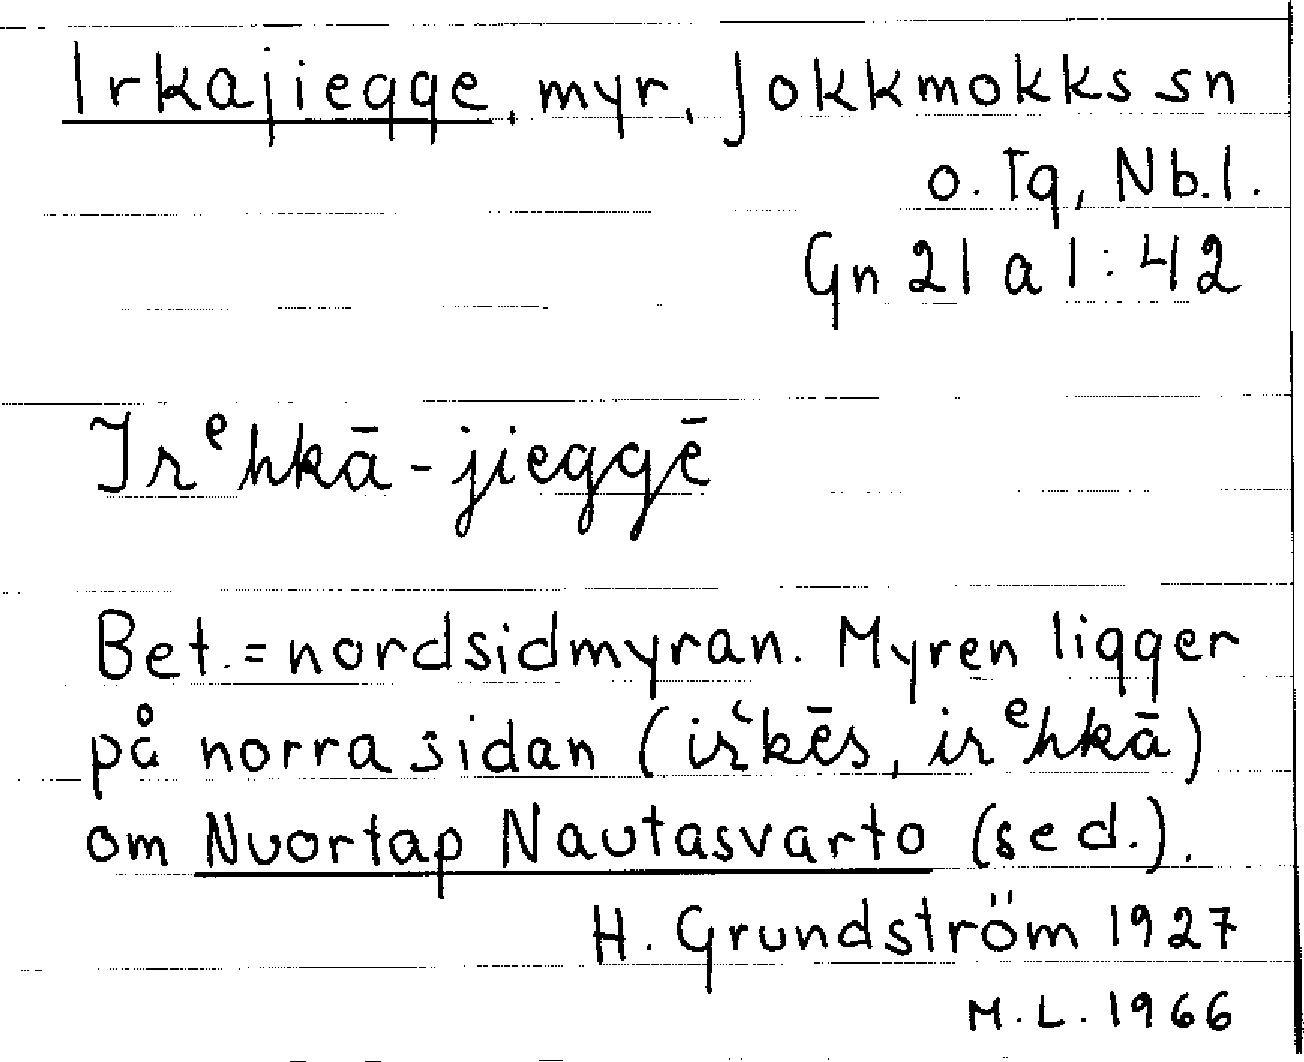 Irkajiegge, myr, Jokkmokks sn
o. tg, Nb.l.
Gn 21 a 1:42
Irᵉhkā-jieggē
Bet.=nordsidmyran. Myren ligger
på norra sidan (irʿkēs, irᵉhkā)
om Nuortap Nautasvarto (se d.).
H. Grundström 1927
M.L. 1966